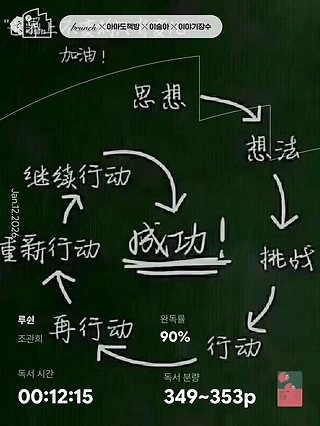 brunch × 아마도책방 × 이슬아 × 이야기장수
加油！
思想
想法
继续行动
成功！
挑战
重新行动
再行动
行动
Jan.12.2026
루쉰
조관희
완독률
90%
독서 시간
00:12:15
독서 분량
349~353p